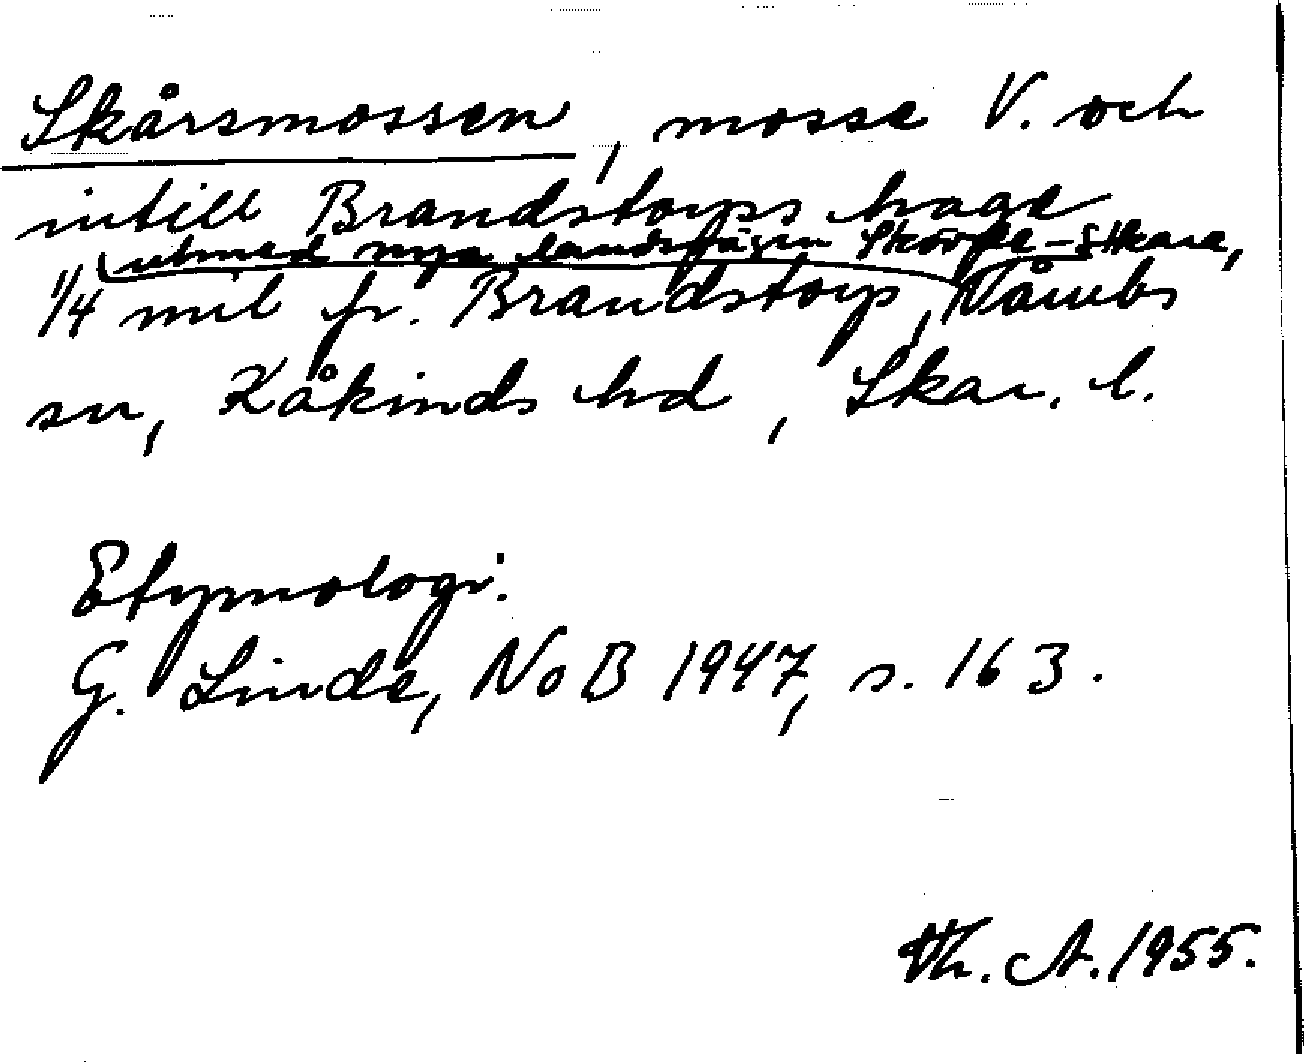 Skårsmossen, mosse V. och
intill Brandstorps hage
utmed nya landsvägen Skövde-Skara,
1/4 mil fr. Brandstorp, Våmbs
sn, Kåkinds hd, Skar. l.
Etymologi:
G. Linde, NoB 1947, s. 163.
Th. A. 1955.